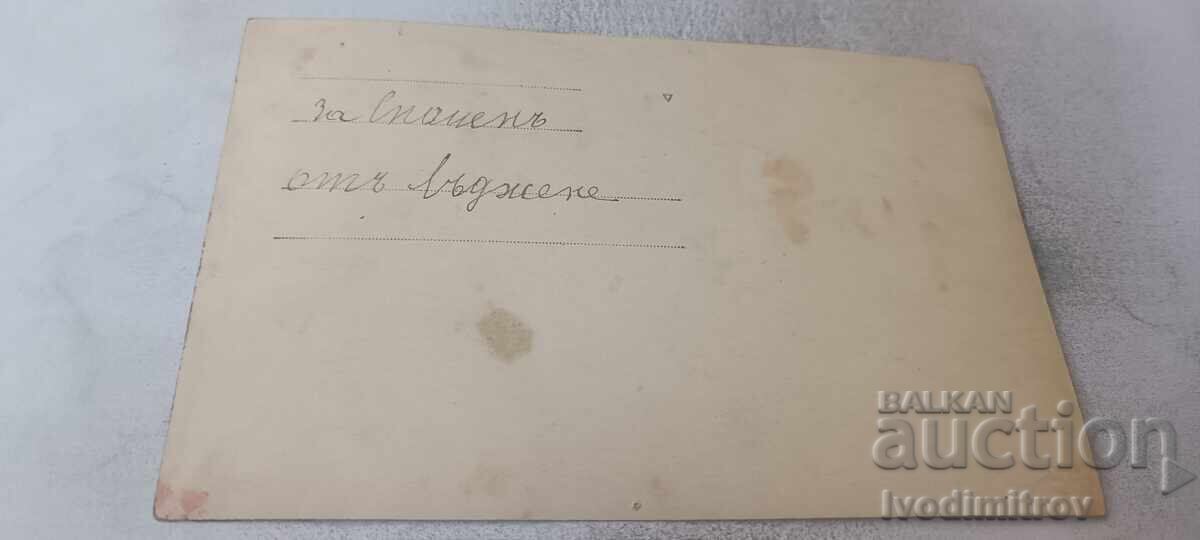 за Спаиенъ
отъ Лъджене
BALKAN
auction
Ivodimitrov